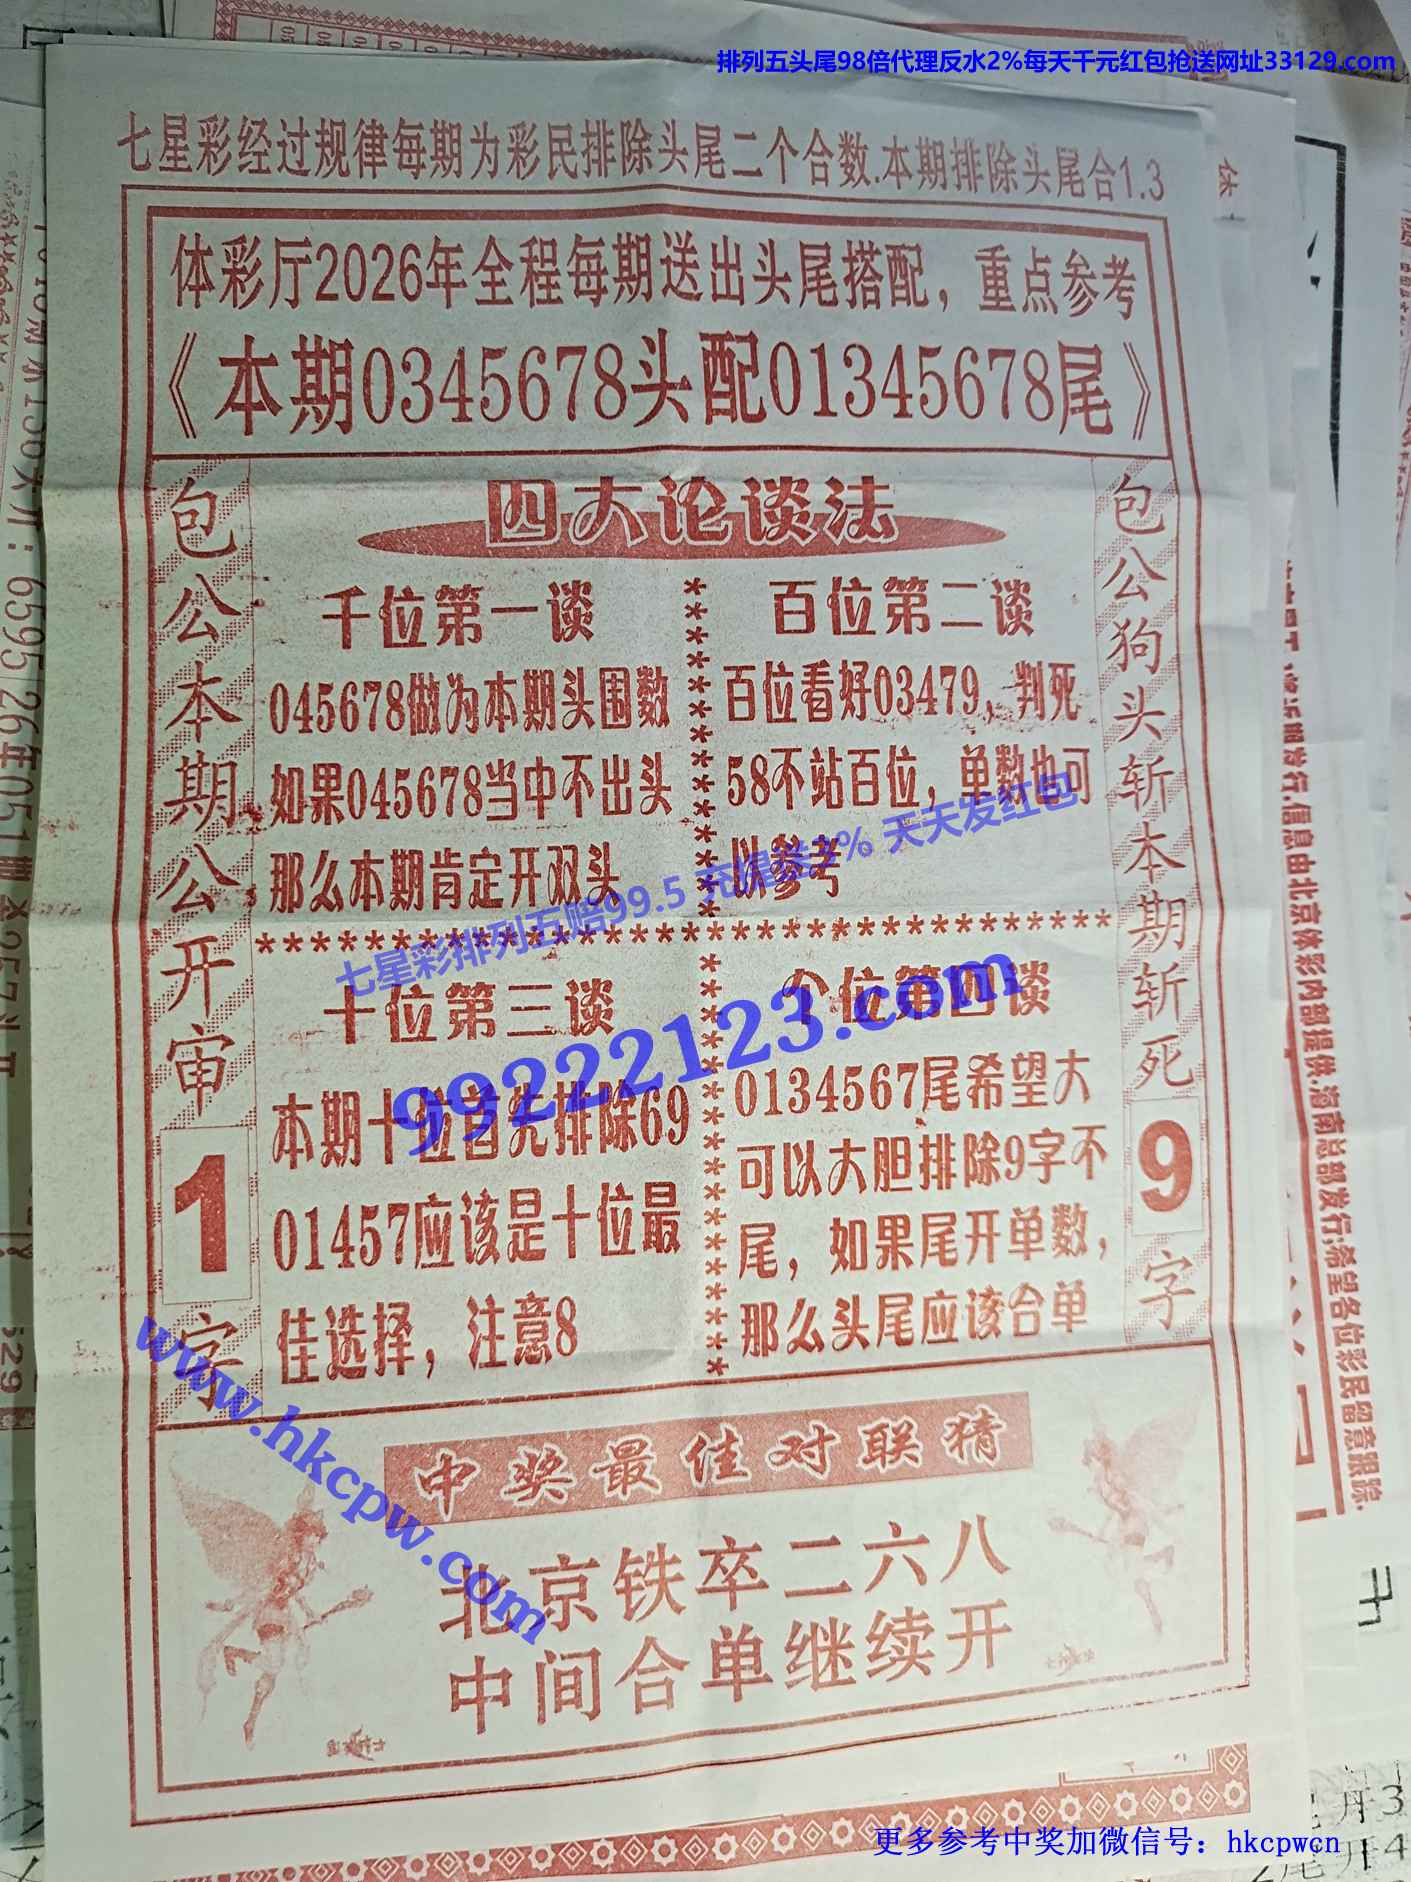 排列五头尾98倍代理反水2%每天千元红包抢送网址33129.com
七星彩经过规律每期为彩民排除头尾二个合数.本期排除头尾合1.3
体彩厅2026年全程每期送出头尾搭配，重点参考
《本期0345678头配01345678尾》
四大论谈法
包公本期公开审1字
包公狗头斩本期斩死9字
千位第一谈
045678做为本期头围数
如果045678当中不出头
那么本期肯定开双头
百位第二谈
百位看好03479，判死
58不站百位，单数也可
以参考
七星彩排列五赔99.5
天天发红包
99222123.com
十位第三谈
本期十位首先排除69
01457应该是十位最
佳选择，注意8
个位第四谈
0134567尾希望大
可以大胆排除9字不
尾，如果尾开单数，
那么头尾应该合单
www.hkcpw.com
中奖最佳对联猜
北京铁卒二六八
中间合单继续开
信息由北京体彩内部提供.海南总部发行;希望各位彩民留意跟踪.
更多参考中奖加微信号：hkcpwcn